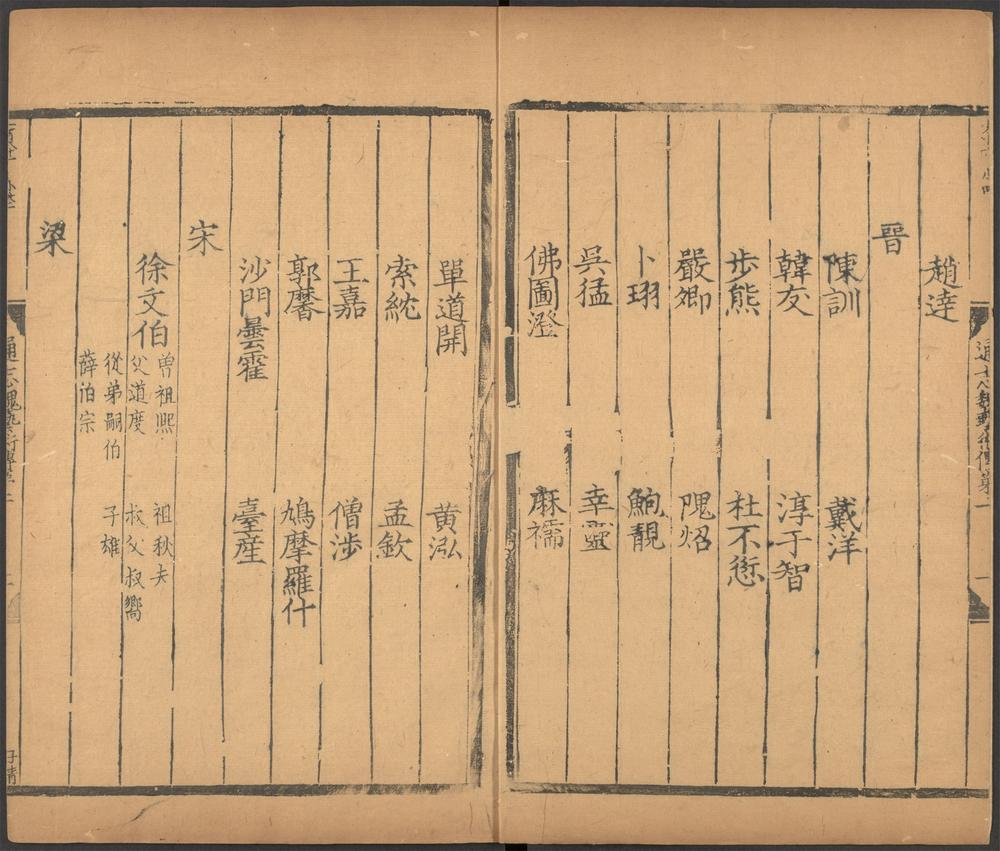 趙達
晉
陳訓 戴洋
韓友 淳于智
步熊 杜不愆
嚴卿 隗炤
卜珝 鮑靚
吳猛 幸靈
佛圖澄 麻襦
單道開 黄泓
索紞 孟欽
王嘉 僧涉
郭黁 鳩摩羅什
沙門曇霍 臺産
宋
徐文伯 曽祖熙 祖秋夫
父道度 叔父叔嚮
從弟嗣伯 子雄
薛伯宗
梁